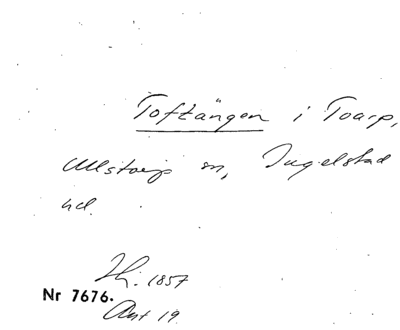 Toftängen i Toarp,
Ullstorp sn, Ingelstad
hd.
Hj. 1857
Nr 7676.
Ant 19.